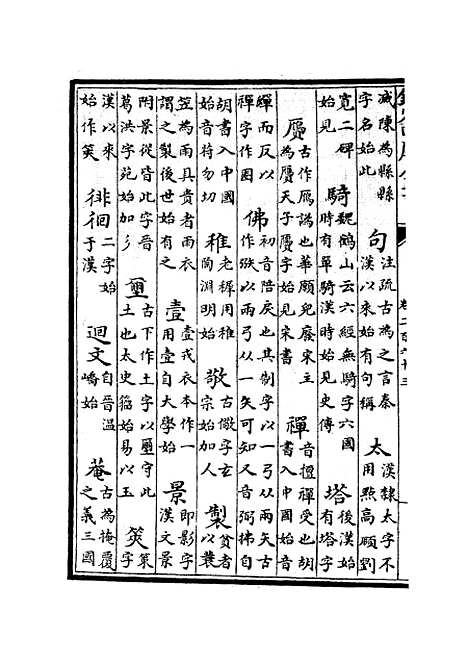 滅陳為縣縣字名始此句注疏古為之言秦漢以來始有句稱太漢隸太字不用㸃高頤劉
寛二碑始見騎魏鶴山云六經無騎字六國時有單騎漢時始見史傳塔後漢始有塔字
贗古作雁譌也華願兒廢宋主為贗天子贗字始見宋書禪音擅禪受也胡書入中國始音
蟬而反以禪字作佛初音陪戾也其制字以一弓从兩矢古作以兩弓从一矢可知又音弼佛自
胡書入中國始音符勿切稚老稺用稚陶淵明始敬古儆字玄宗始加人製貧者以蓑
笠為雨具貴者雨衣謂之製後世始有之壹壹戎衣本作一用壹自大學始景即影字漢文景
附景從皆此字晉葛洪字苑始加彡璽古下作土字以璽守此土也太史籀始易以玉筴策字
漢以來始作筴徘徊二字始于漢迴文自晉溫嶠始菴古為掩覆之義三國